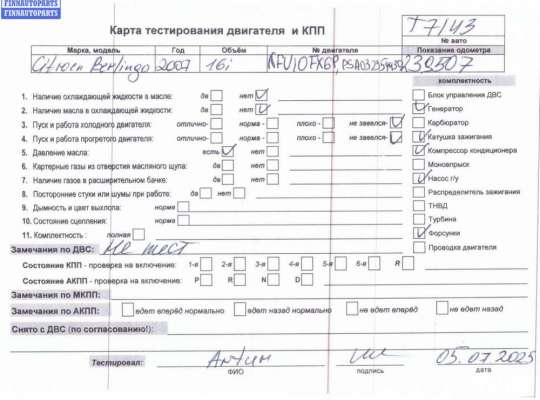 FINNAUTOPARTS
Карта тестирования двигателя и КПП
Т7143
№ авто
Марка, модель Год Объём № двигателя Показания одометра
Citroen Berlingo 2007 16i 230507
комплектность
1. Наличие охлаждающей жидкости в масле: да нет Блок управления ДВС
2. Наличие масла в охлаждающей жидкости: да нет Генератор
3. Пуск и работа холодного двигателя: отлично- норма - плохо - не завелся- Карбюратор
4. Пуск и работа прогретого двигателя: отлично- норма - плохо - не завелся- Катушка зажигания
5. Давление масла: есть нет Компрессор кондиционера
6. Картерные газы из отверстия масляного щупа: да нет Моновпрыск
7. Наличие газов в расширительном бачке: да нет Насос г/у
8. Посторонние стуки или шумы при работе: да нет Распределитель зажигания
9. Дымность и цвет выхлопа: норма ТНВД
10. Состояние сцепления: норма Турбина
11. Комплектность : полная Форсунки
Замечания по ДВС: Не тест Проводка двигателя
Состояние КПП - проверка на включение: 1-я 2-я 3-я 4-я 5-я 6-я R
Состояние АКПП - проверка на включение: P R N D
Замечания по МКПП:
Замечания по АКПП: едет вперёд нормально едет назад нормально не едет вперёд не едет назад
Снято с ДВС (по согласованию!):
Тестировал: Антип 05.07.2025
ФИО подпись дата